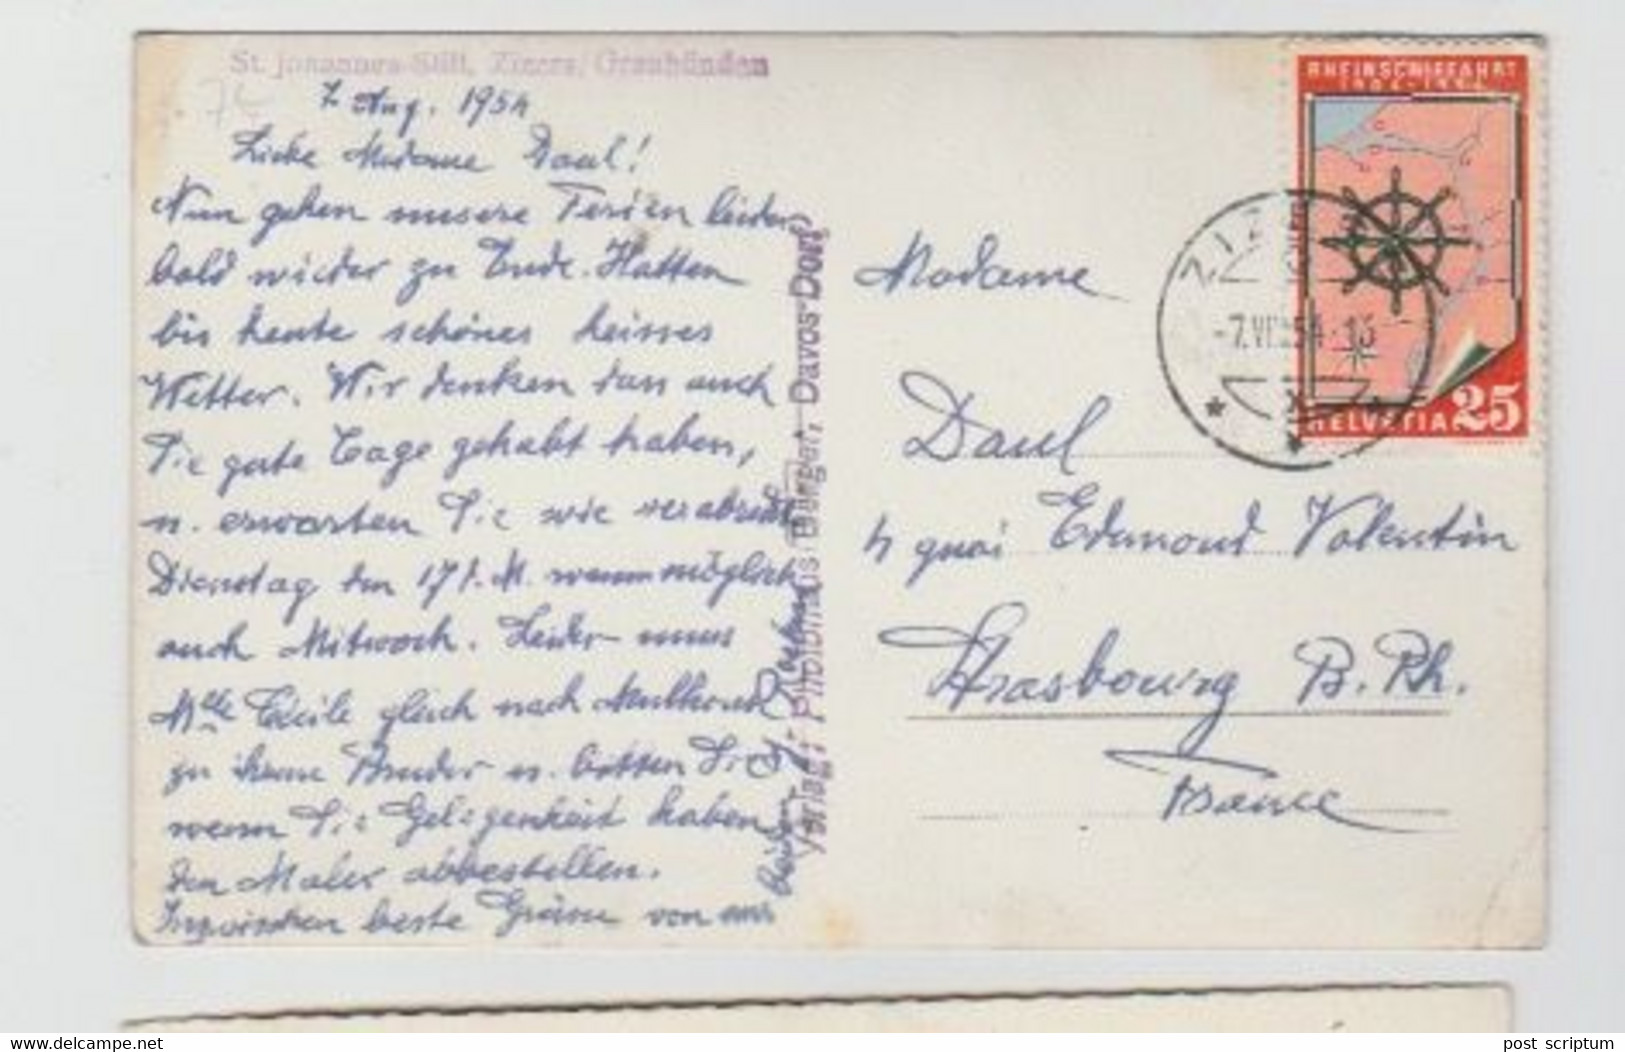 St. Johannes-Stift, Zizers/Graubünden
7. Aug. 1954
Liebe Madame Daul!
Nun gehen unsere Ferien leider
bald wieder zu Ende. Hatten
bis heute schönes heisses
Wetter. Wir denken dass auch
Sie gute Tage gehabt haben,
u. erwarten Sie wie verabredet
Dienstag den 17 d. M. wenn möglich
auch Mitwoch. Leider muss
Mlle Cécile gleich nach
zu ihrem Bruder u. bitten Sie
wenn Sie Gelegenheit haben
den Maler abbestellen.
Inzwischen beste Grüsse von uns
beiden
Verlag: Photohaus Berger, Davos-Dorf
Madame
Daul
4 quai Edmond Valentin
Strasbourg B. Rh.
France
RHEINSCHIFFAHRT
1904-1954
HELVETIA 25
ZIZERS
-7.VIII.54-16
delcampe.net
post scriptum